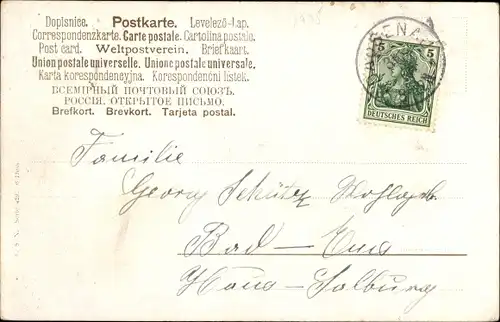 Dopisnice. Postkarte. Levelező-Lap.
Correspondenzkarte. Carte postale. Cartolina postale.
Post card. Weltpostverein. Brefkaart.
Union postale universelle. Unione postale universale.
Karta korespondencyjna. Korespondenční lístek.
ВСЕМІРНЫЙ ПОЧТОВЫЙ СОЮЗЪ.
РОССІЯ. ОТКРЫТОЕ ПИСЬМО.
Brefkort. Brevkort. Tarjeta postal.
5 5
DEUTSCHES REICH
Familie
Georg Schütz
Bad-Ems
Haus-Salburg